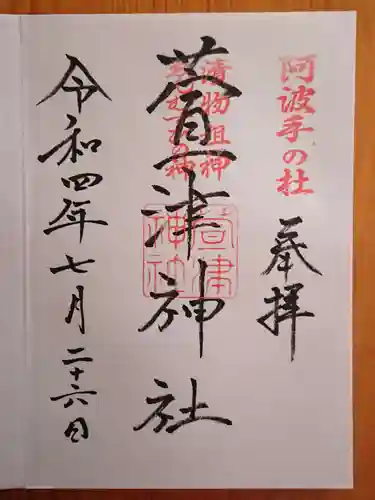 阿波手の杜
奉拝
漬物祖神
萱津神社
萱津神社
令和四年七月二十六日